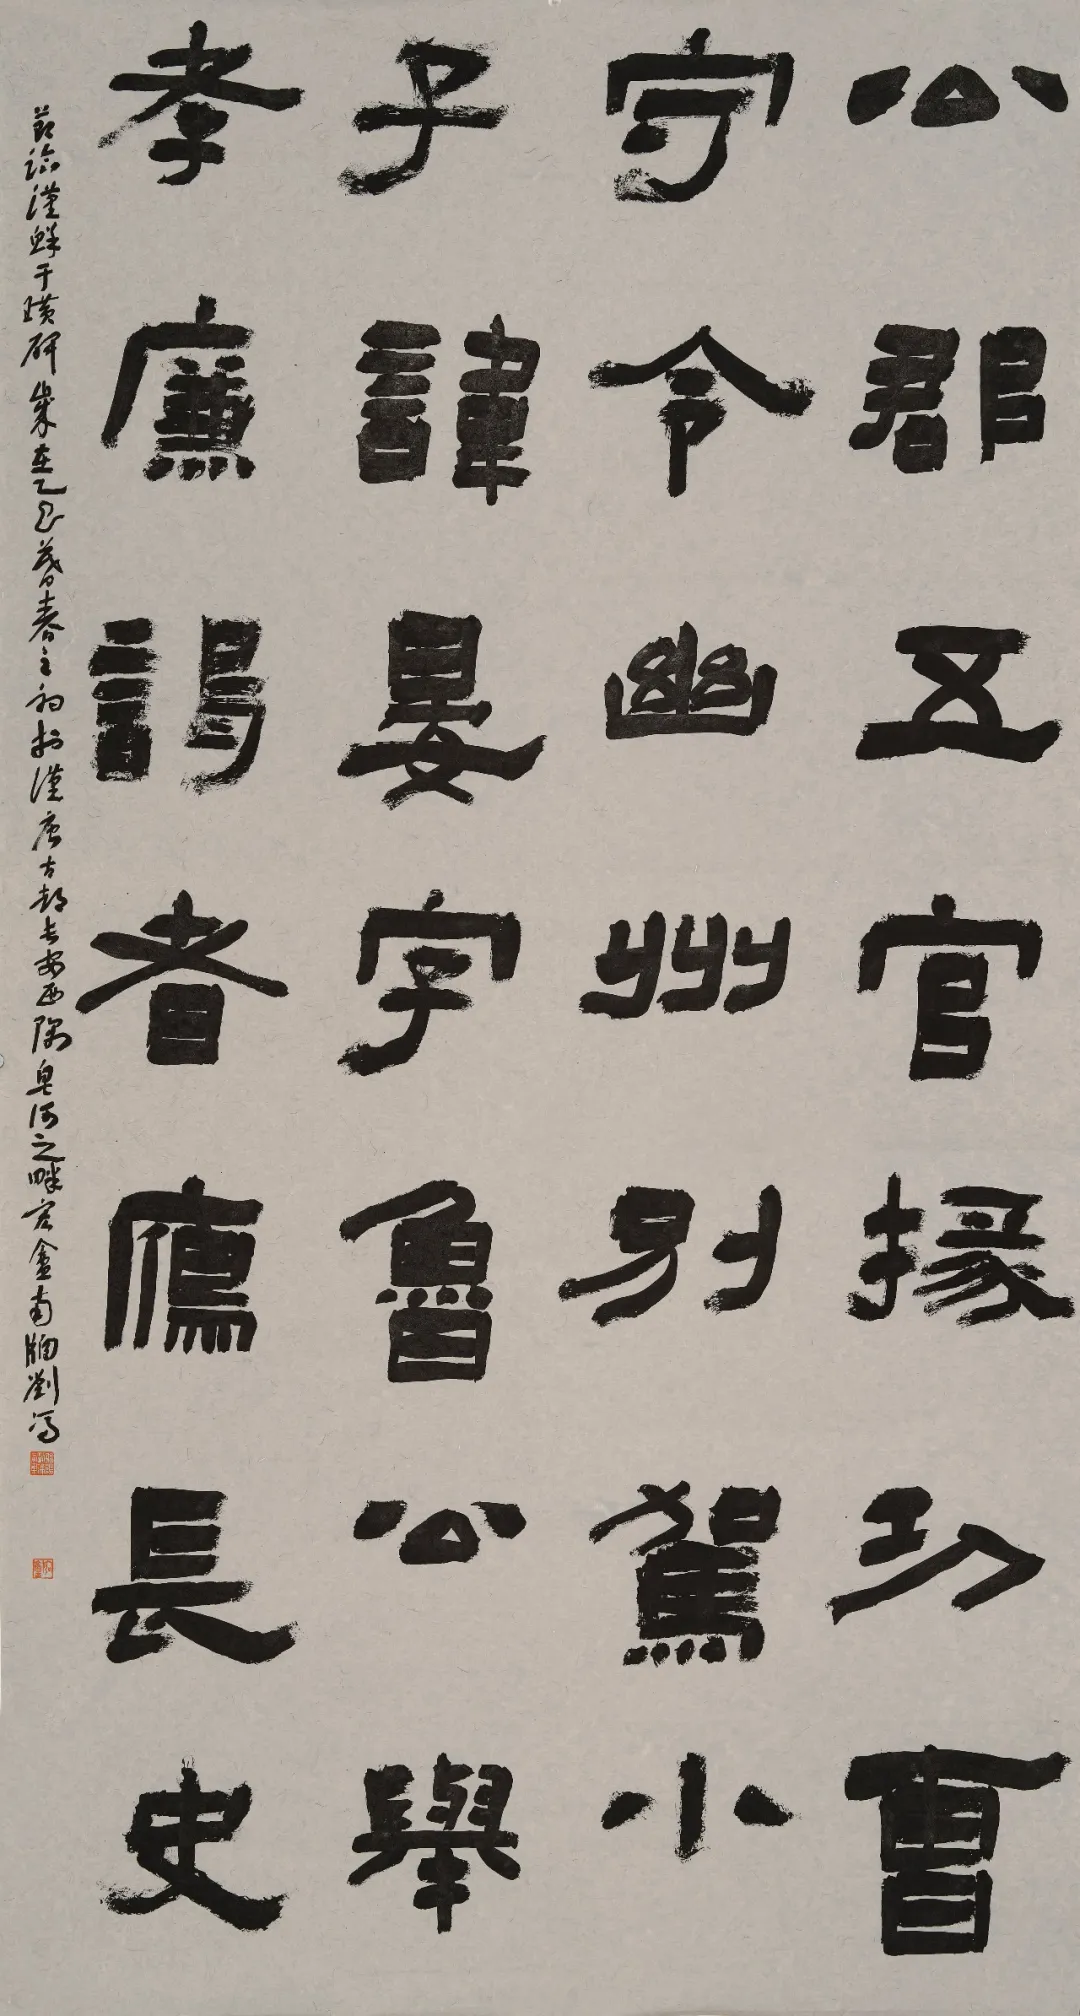 公郡五官掾功曹
守令幽州別駕小
子諱晏字魯公舉
孝廉謁者鴈長史
節臨漢鮮于璜碑歲在乙巳暮春之初於漢唐古都長安西隅皂河之畔客盦南牖劉